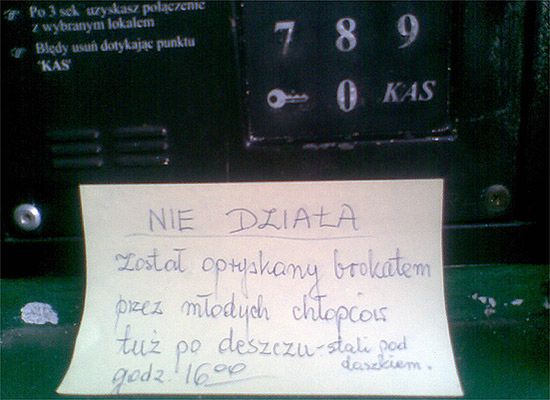 Po 3 sek uzyskasz połączenie
z wybranym lokalem
Błędy usuń dotykając punktu
'KAS'
7 8 9
0 KAS
NIE DZIAŁA
został opryskany brokatem
przez młodych chłopców
tuż po deszczu - stali pod
daszkiem.
godz. 16⁰⁰